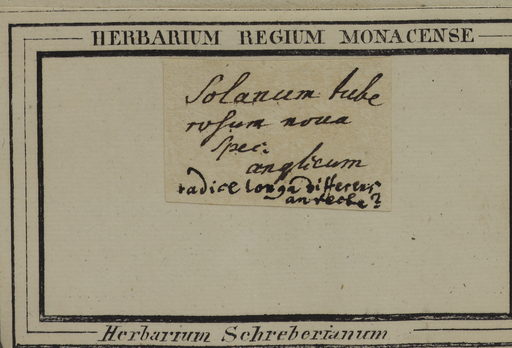 HERBARIUM REGIUM MONACENSE
Solanum tube
rosum nova
spec:
anglicum
radice longa differens
an recte?
Herbarium Schreberianum